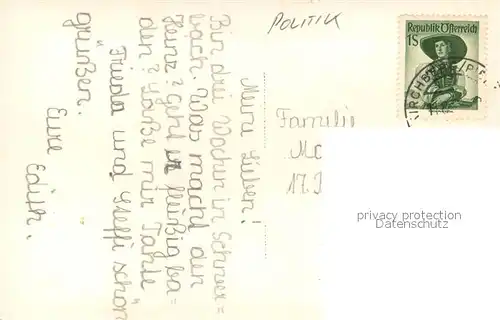 POLITIK
Republik Österreich
1S
KIRCHB
Meine Lieben!
Bin drei Wochen in Schwarz=
bach. Was macht den
Heinz? Geht er fleißig ba=
den? Laße mir Tante
Frieda und Steffi schön
grüßen.
Eure
Edith.
Familie
Mo
17.
privacy protection
Datenschutz